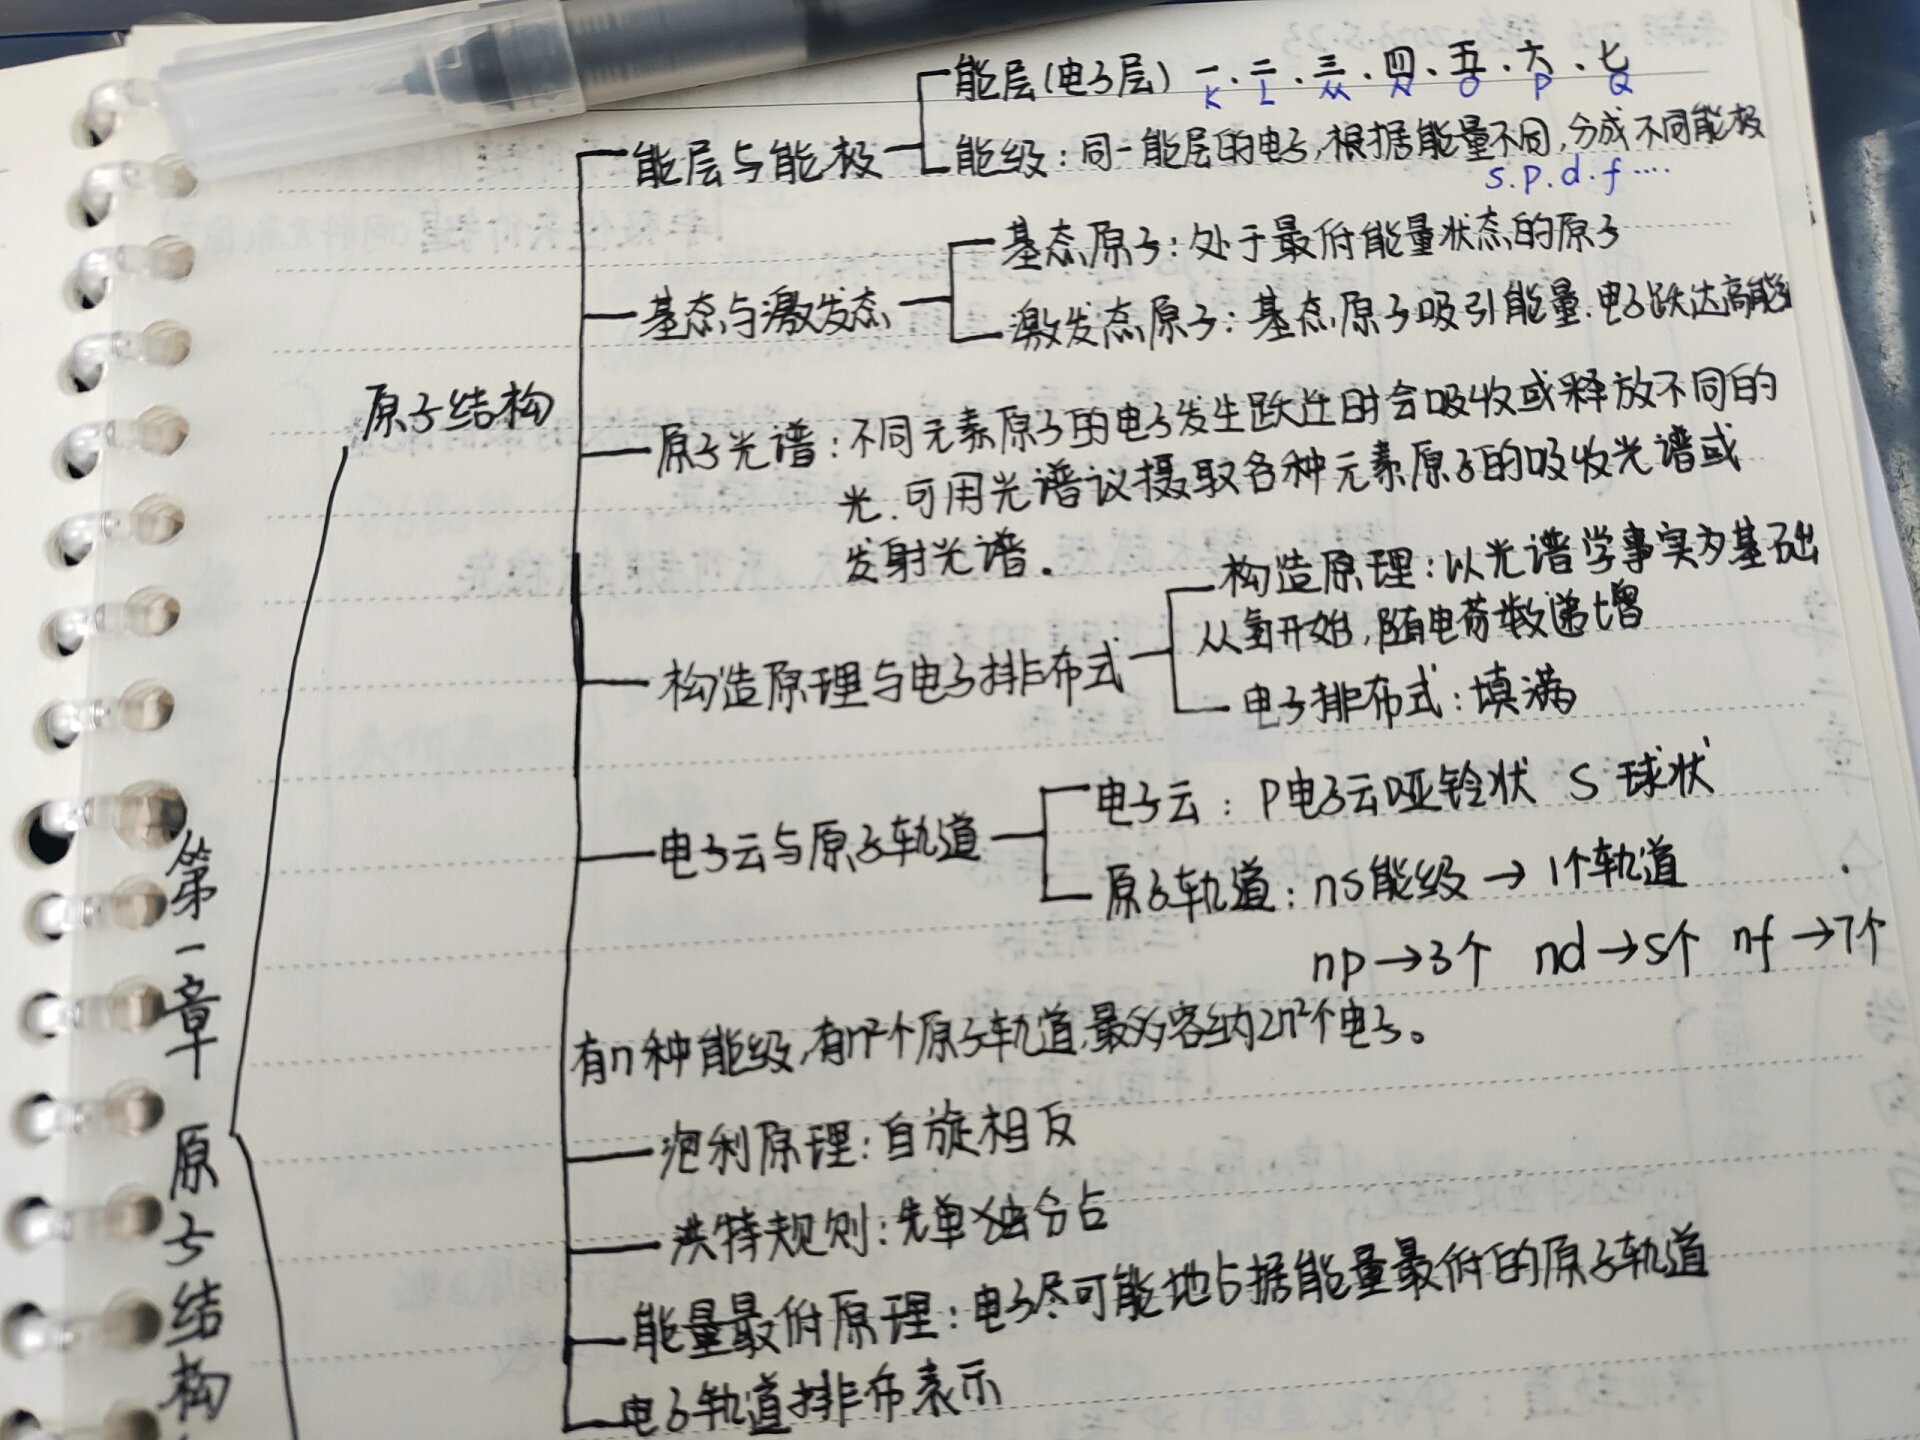 能层(电子层) 一、二、三、四、五、六、七
K L M N O P Q
能层与能极
能级：同一能层的电子,根据能量不同,分成不同能极
s.p.d.f....
基态原子：处于最低能量状态的原子
基态与激发态
激发态原子：基态原子吸引能量.电子跃达高能
原子结构
原子光谱：不同元素原子的电子发生跃迁时会吸收或释放不同的
光.可用光谱议摄取各种元素原子的吸收光谱或
发射光谱.
构造原理：以光谱学事实为基础
从氢开始,随电荷数递增
构造原理与电子排布式
电子排布式：填满
电子云：P电子云哑铃状 S 球状
电子云与原子轨道
原子轨道：ns能级→1个轨道
np→3个 nd→5个 nf→7个
有n种能级,有n²个原子轨道,最多容纳2n²个电子。
泡利原理：自旋相反
洪特规则：先单独分占
能量最低原理：电子尽可能地占据能量最低的原子轨道
电子轨道排布表示
第一章 原子结构